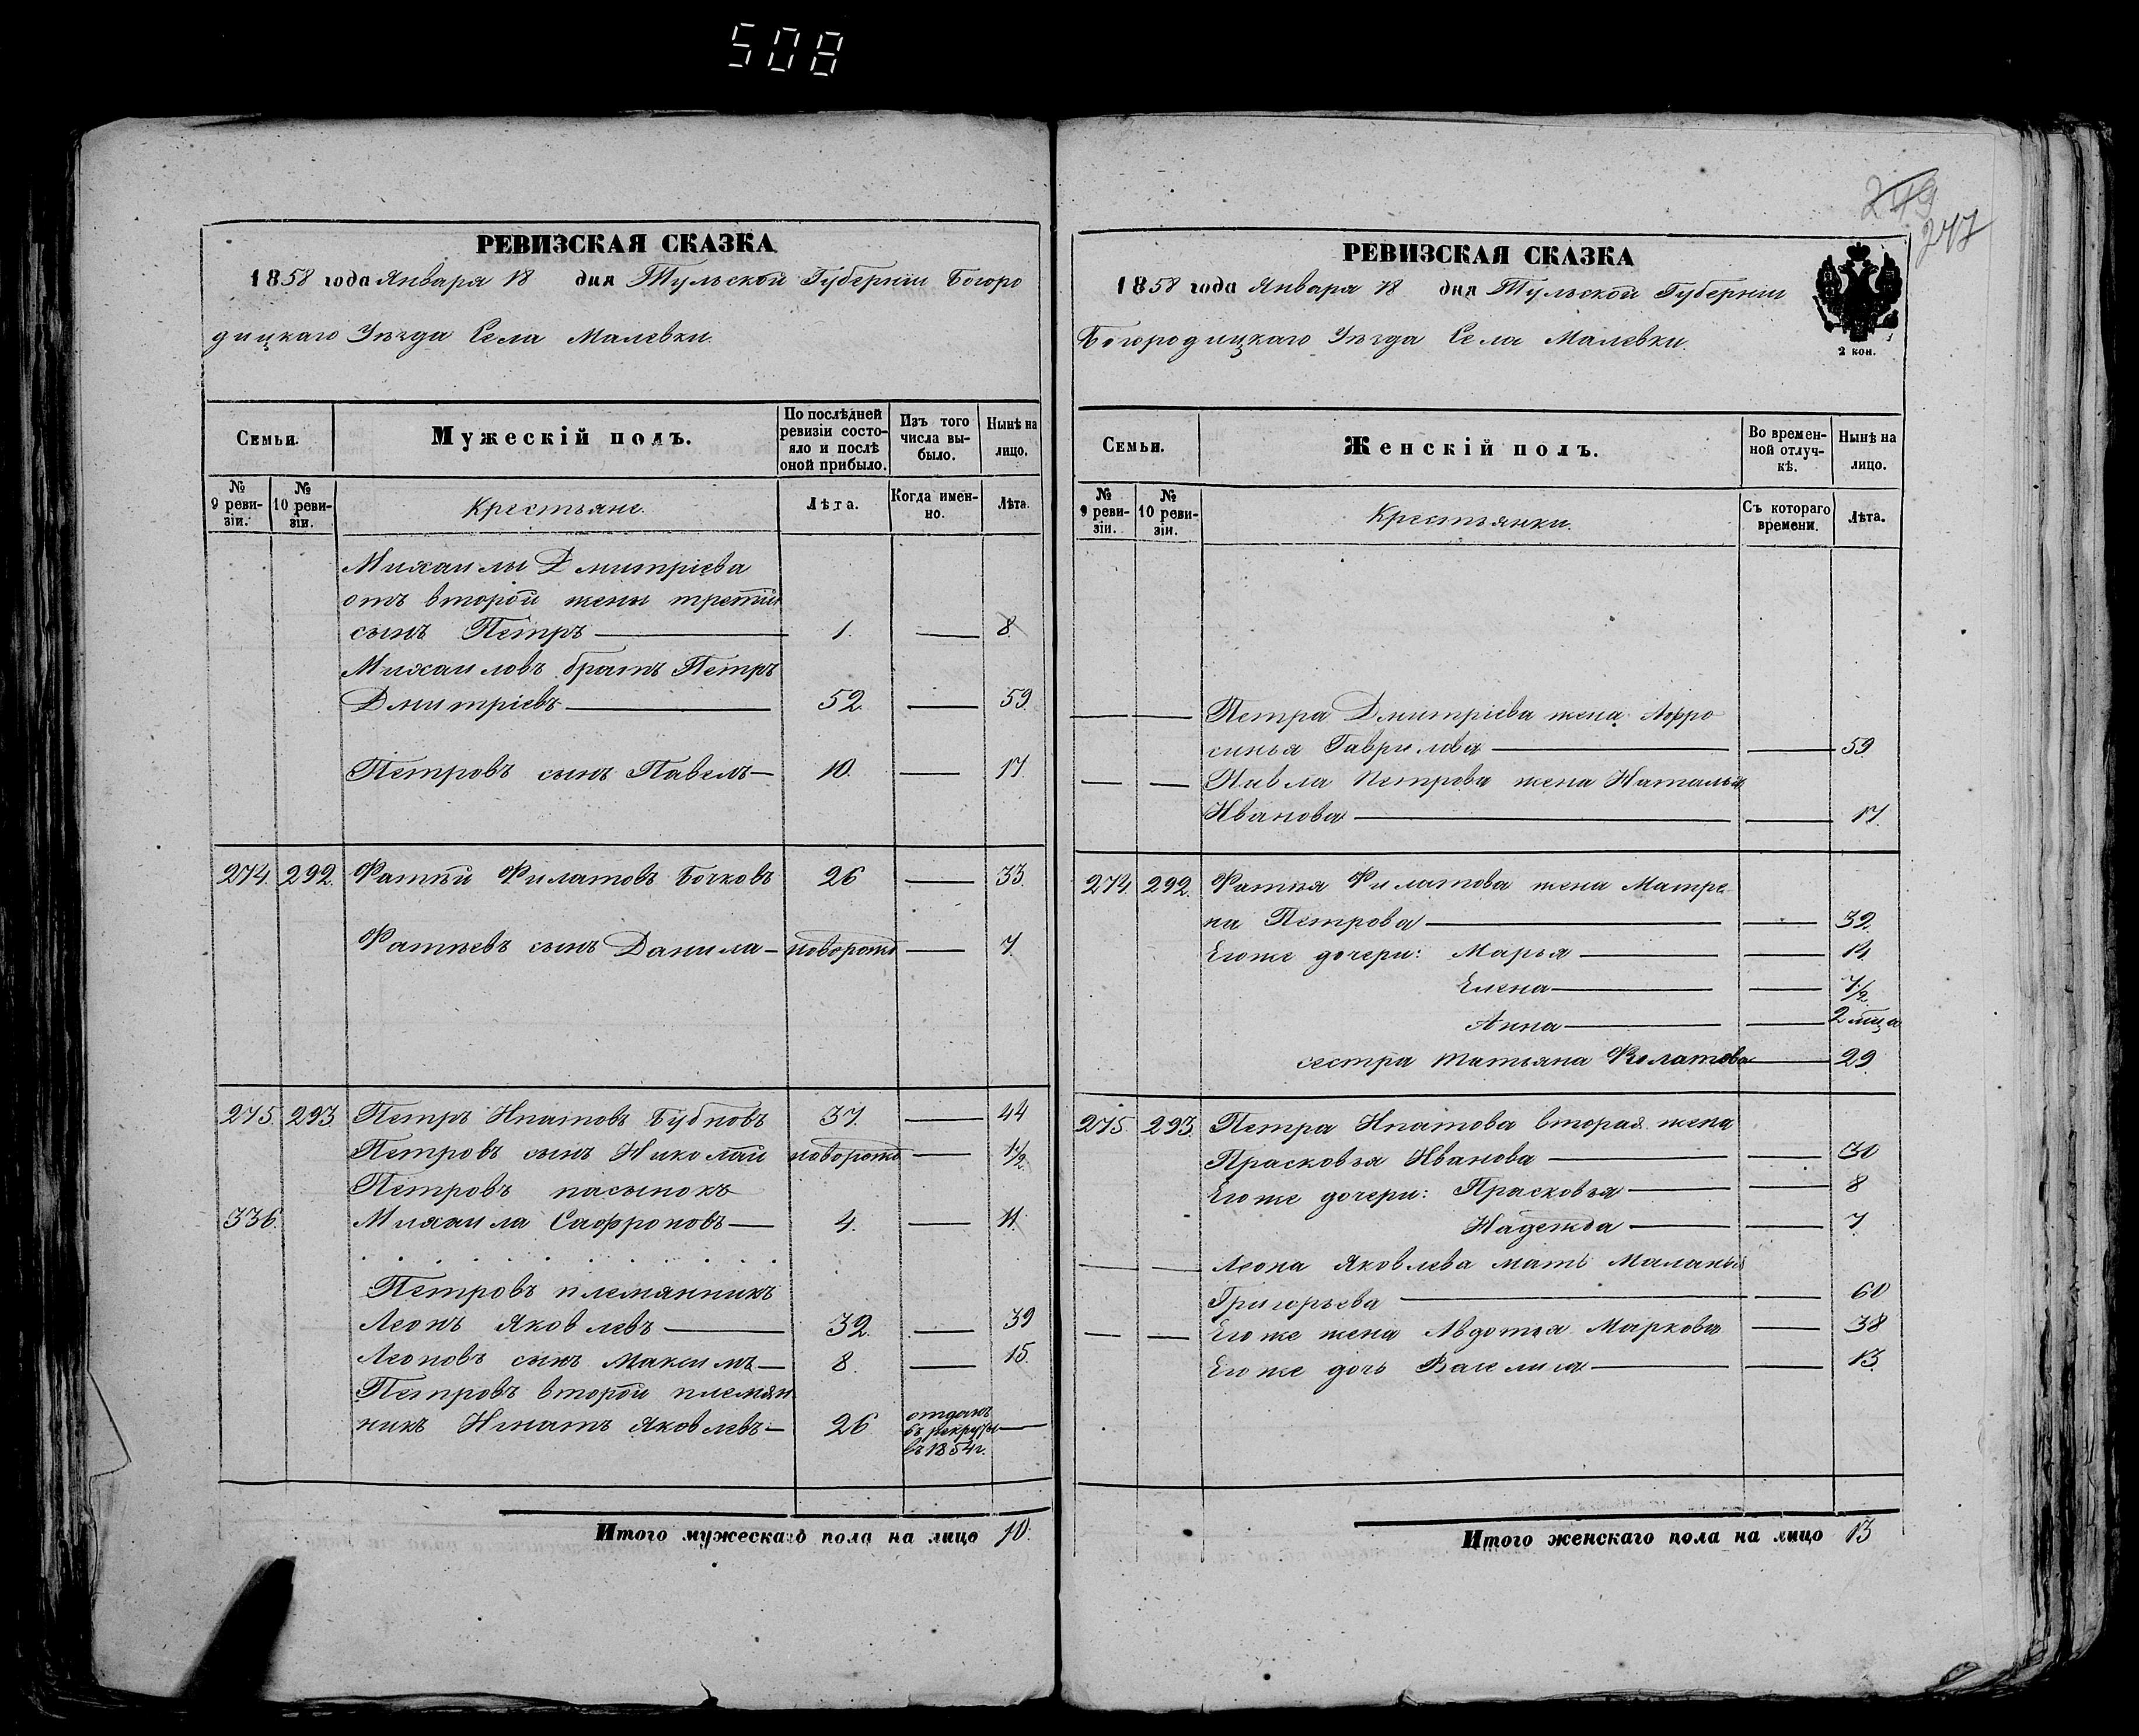 508
РЕВИЗСКАЯ СКАЗКА
1858 года Января 18 дня Тульской Губерніи Богоро
дицкаго Уѣзда Села Малевки.
Семьи.
Мужескій полъ.
По послѣдней ревизіи состояло и послѣ оной прибыло.
Изъ того числа выбыло.
Нынѣ на лицо.
№ 9 ревизіи.
№ 10 ревизіи.
Крестьяне.
Лѣта.
Когда именно.
Лѣта.
Михаилы Дмитріева
отъ второй жены третій
сынъ Петръ — 1. — 8.
Михаиловъ братъ Петръ
Дмитріевъ — 52 — 59.
Петровъ сынъ Павелъ — 10. — 17.
274. 292. Фатѣй Филатовъ Бочковъ 26 — 33.
Фатѣевъ сынъ Данила — новорожд — 7.
275. 293 Петръ Ипатовъ Бубновъ 37. — 44
Петровъ сынъ Николай новорожд — 1/2
Петровъ пасынокъ
336. Михаила Сафроновъ — 4. — 11.
Петровъ племянникъ
Леонъ Яковлевъ — 32. — 39
Леоновъ сынъ Максимъ — 8. — 15.
Петровъ второй племян
никъ Игнатъ Яковлевъ — 26 отданъ въ рекруты въ 1854 г. —
Итого мужескаго пола на лицо 10.
249
247
РЕВИЗСКАЯ СКАЗКА
1858 года Января 18 дня Тульской Губерніи
Богородицкаго Уѣзда Села Малевки.
2 коп.
Семьи.
Женскій полъ.
Во временной отлучкѣ.
Нынѣ на лицо.
№ 9 ревизіи.
№ 10 ревизіи.
Крестьянки.
Съ котораго времени.
Лѣта.
— — Петра Дмитріева жена Афро
синья Гаврилова — — 59.
— — Павла Петрова жена Наталья
Иванова — — 17.
274. 292. Фатѣя Филатова жена Матре
на Петрова — — 32.
Его же дочери: Марья — — 14.
Елена — — 1/2.
Анна — — 2 мца
сестра Татьяна Филатова — 29
275. 293. Петра Ипатова вторая жена
Прасковья Иванова — — 30
Его же дочери: Прасковья — — 8
Надежда — — 7.
— — Леона Яковлева мать Маланья
Григорьева — — 60
— — Его же жена Авдотья Маркова — 38
Его же дочь Василиса — — 13.
Итого женскаго пола на лицо 13